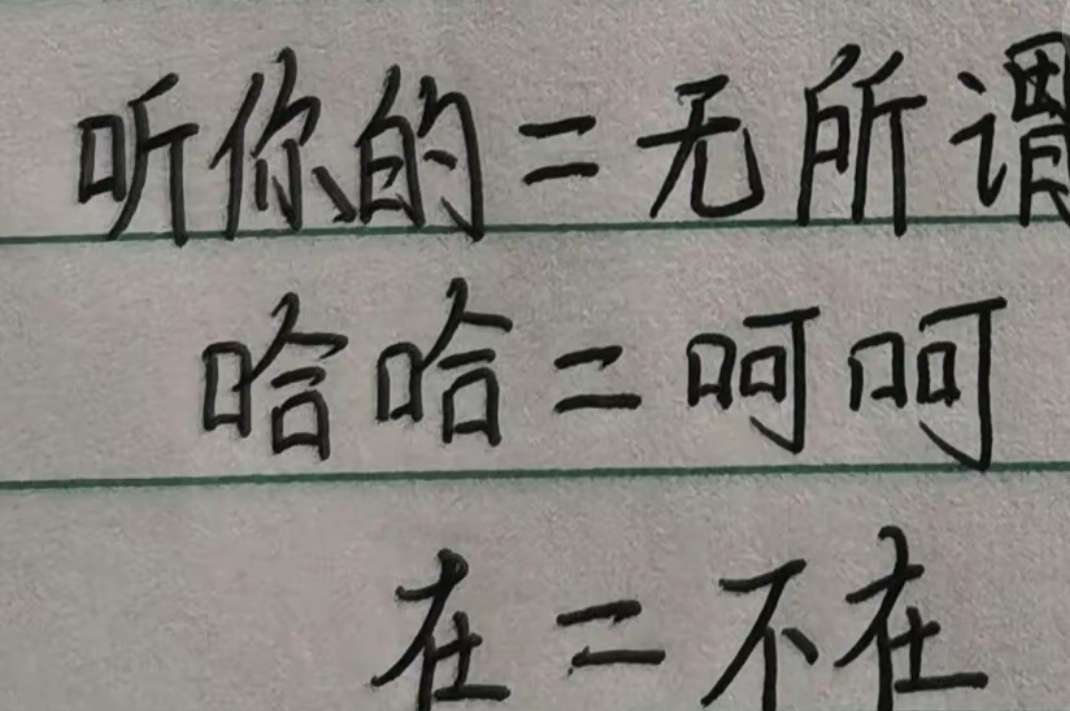 听你的=无所谓
哈哈=呵呵
在=不在